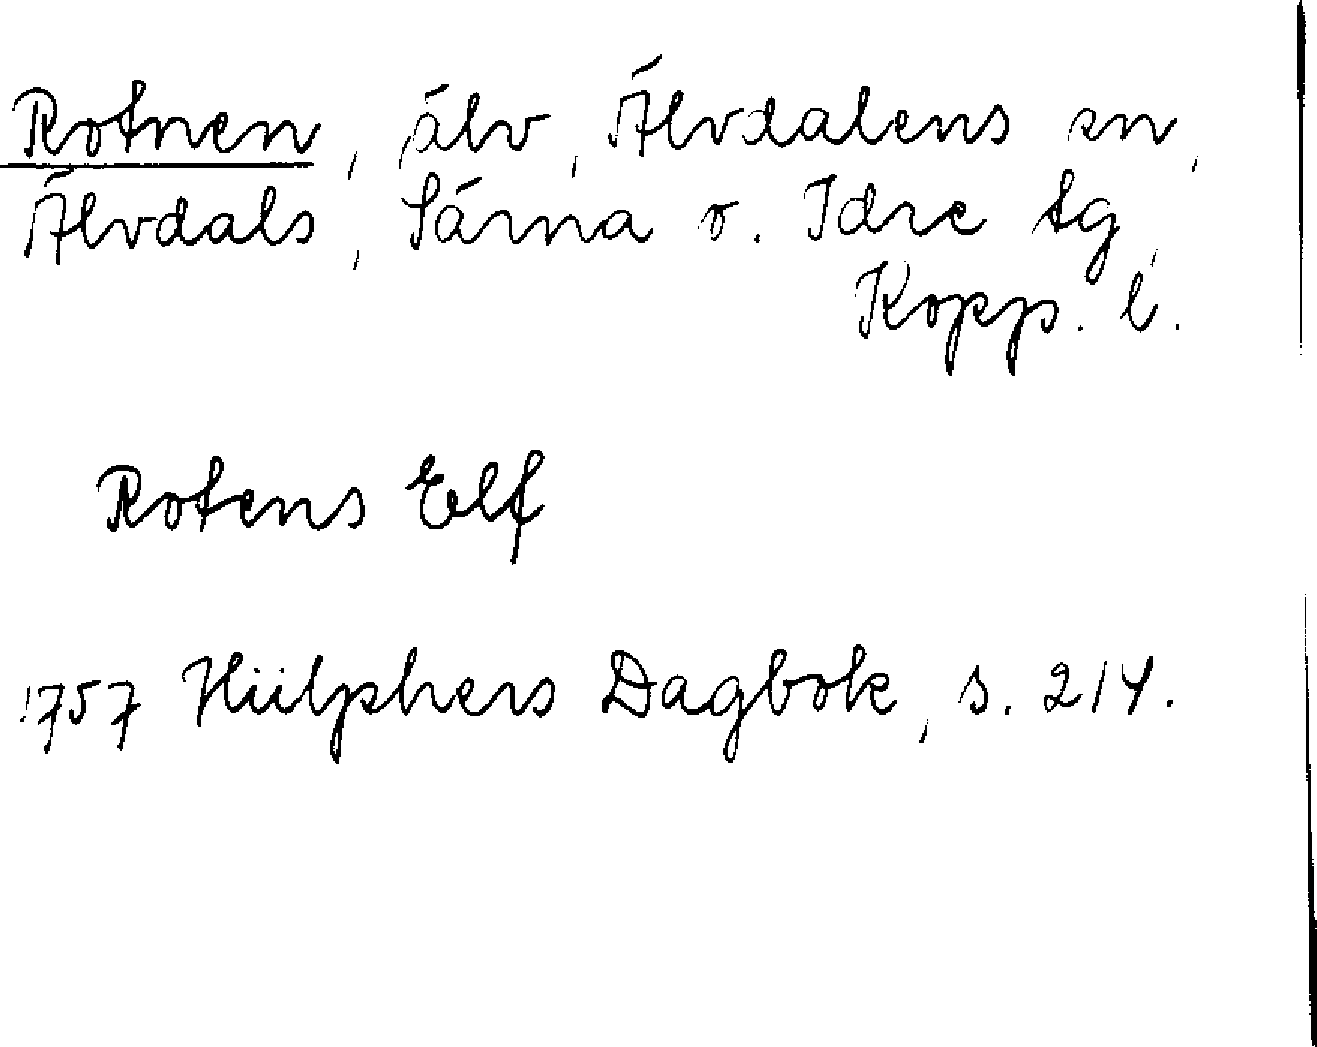 Rotnen, älv, Älvdalens sn,
Älvdals, Särna o. Idre tg,
Kopp. l.
Rotens Elf
1757 Hülphers Dagbok, s. 214.